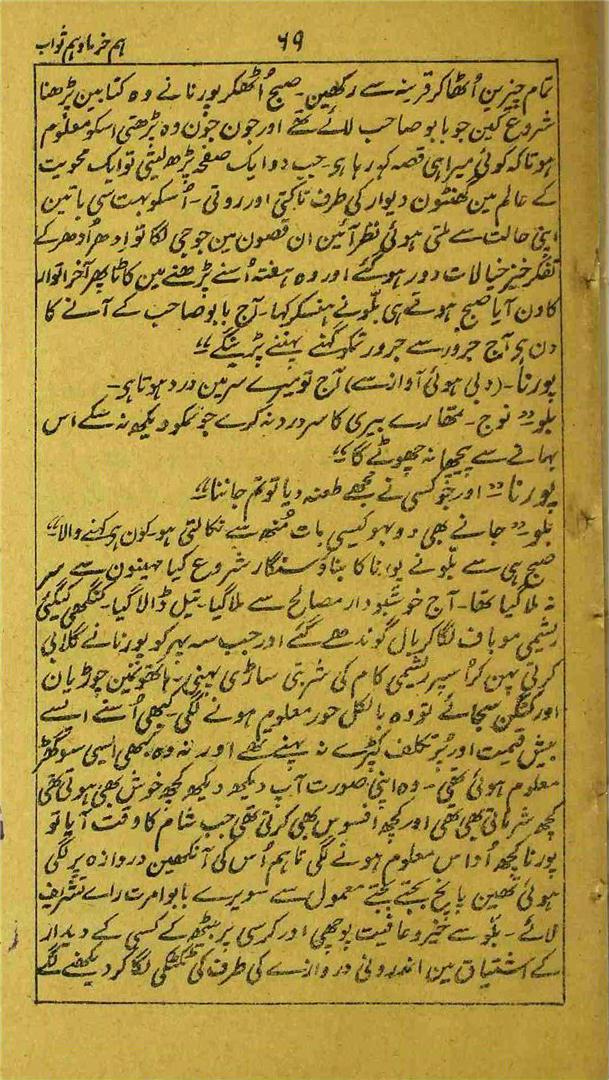 ہم خرما و ہم ثواب
۶۹
تمام چیزین اُٹھا کر قرینہ سے رکھین۔ صبح اُٹھکر پورنا نے وہ کتابین پڑھنا
شروع کین جو بابو صاحب لائے تھے اور جون جون وہ پڑھتی اسکو معلوم
ہوتا کہ کوئی میرا ہی قصہ کہہ رہا ہی۔ جب دو ایک صفحہ پڑھ لیتی تو ایک محویت
کے عالم مین گھنٹون دیوار کی طرف تاکتی اور روتی۔ اُسکو بہت سی باتین
اپنی حالت سے ملتی ہوئی نظر آئین ان قصون مین جو جی لگا تو ادھر اُدھر کے
تفکر خیز خیالات دور ہو گئے اور وہ ہفتہ اُسنے پڑھنے مین کاٹا پھر آخر اتوار
کا دن آیا صبح ہوتے ہی بلّو نے ہنسکر کہا۔ آج بابو صاحب کے آنے کا
دن ہی آج جرور سے جرور تمکو گہنے پہننے پڑینگے"
پورنا۔ (دبی ہوئی آواز سے) آج تو میرے سر مین درد ہوتا ہی۔
بلّو۔ "نوج۔ تمھارے بیری کا سر درد نہ کرے جو تمکو دیکھ نہ سکے اس
بہانے سے پیچھا نہ چھوٹے گا"
پورنا "اور جو کسی نے مجھے طعنہ دیا تو تم جاننا"
بلّو۔ "جانے بھی دو بہو کیسی بات مُنھ سے نکالتی ہو۔ کون ہی کہنے والا"
صبح ہی سے بلّو نے پورنا کا بناؤ سنگار شروع کیا مہینون سے سر
نہ ملا گیا تھا۔ آج خوشبودار مصالح سے ملا گیا۔ تیل ڈالا گیا۔ کنگھی کیگئی
ریشمی موباف لگا کر بال گوندھے گئے اور جب سہ پہر کو پورنا نے گلابی
کرتی پہن کر اُسپر ریشمی کام کی شربتی ساڑی پہنی۔ ہاتھونمین چوڑیان
اور کنگن سجائے تو وہ بالکل حور معلوم ہونے لگی۔ کبھی اُسنے ایسے
بیش قیمت اور پُر تکلف کپڑے نہ پہنے تھے اور نہ وہ کبھی ایسی سوگھڑ
معلوم ہوئی تھی۔ وہ اپنی صورت آپ دیکھ دیکھ کچھ خوش بھی ہوتی تھی
کچھ شرماتی بھی تھی اور کچھ افسوس بھی کرتی تھی جب شام کا وقت آیا تو
پورنا کچھ اُداس معلوم ہونے لگی تاہم اُس کی آنکھین دروازہ پر لگی
ہوئی تھین پانچ بجتے بجتے معمول سے سویرے بابو امرت رائے تشریف
لائے۔ بلّو سے خیر و عافیت پوچھی اور کرسی پر بیٹھ کے کسی کے دیدار
کے اشتیاق مین اندرونی دروازے کی طرف ٹکٹکی لگا کر دیکھنے لگے